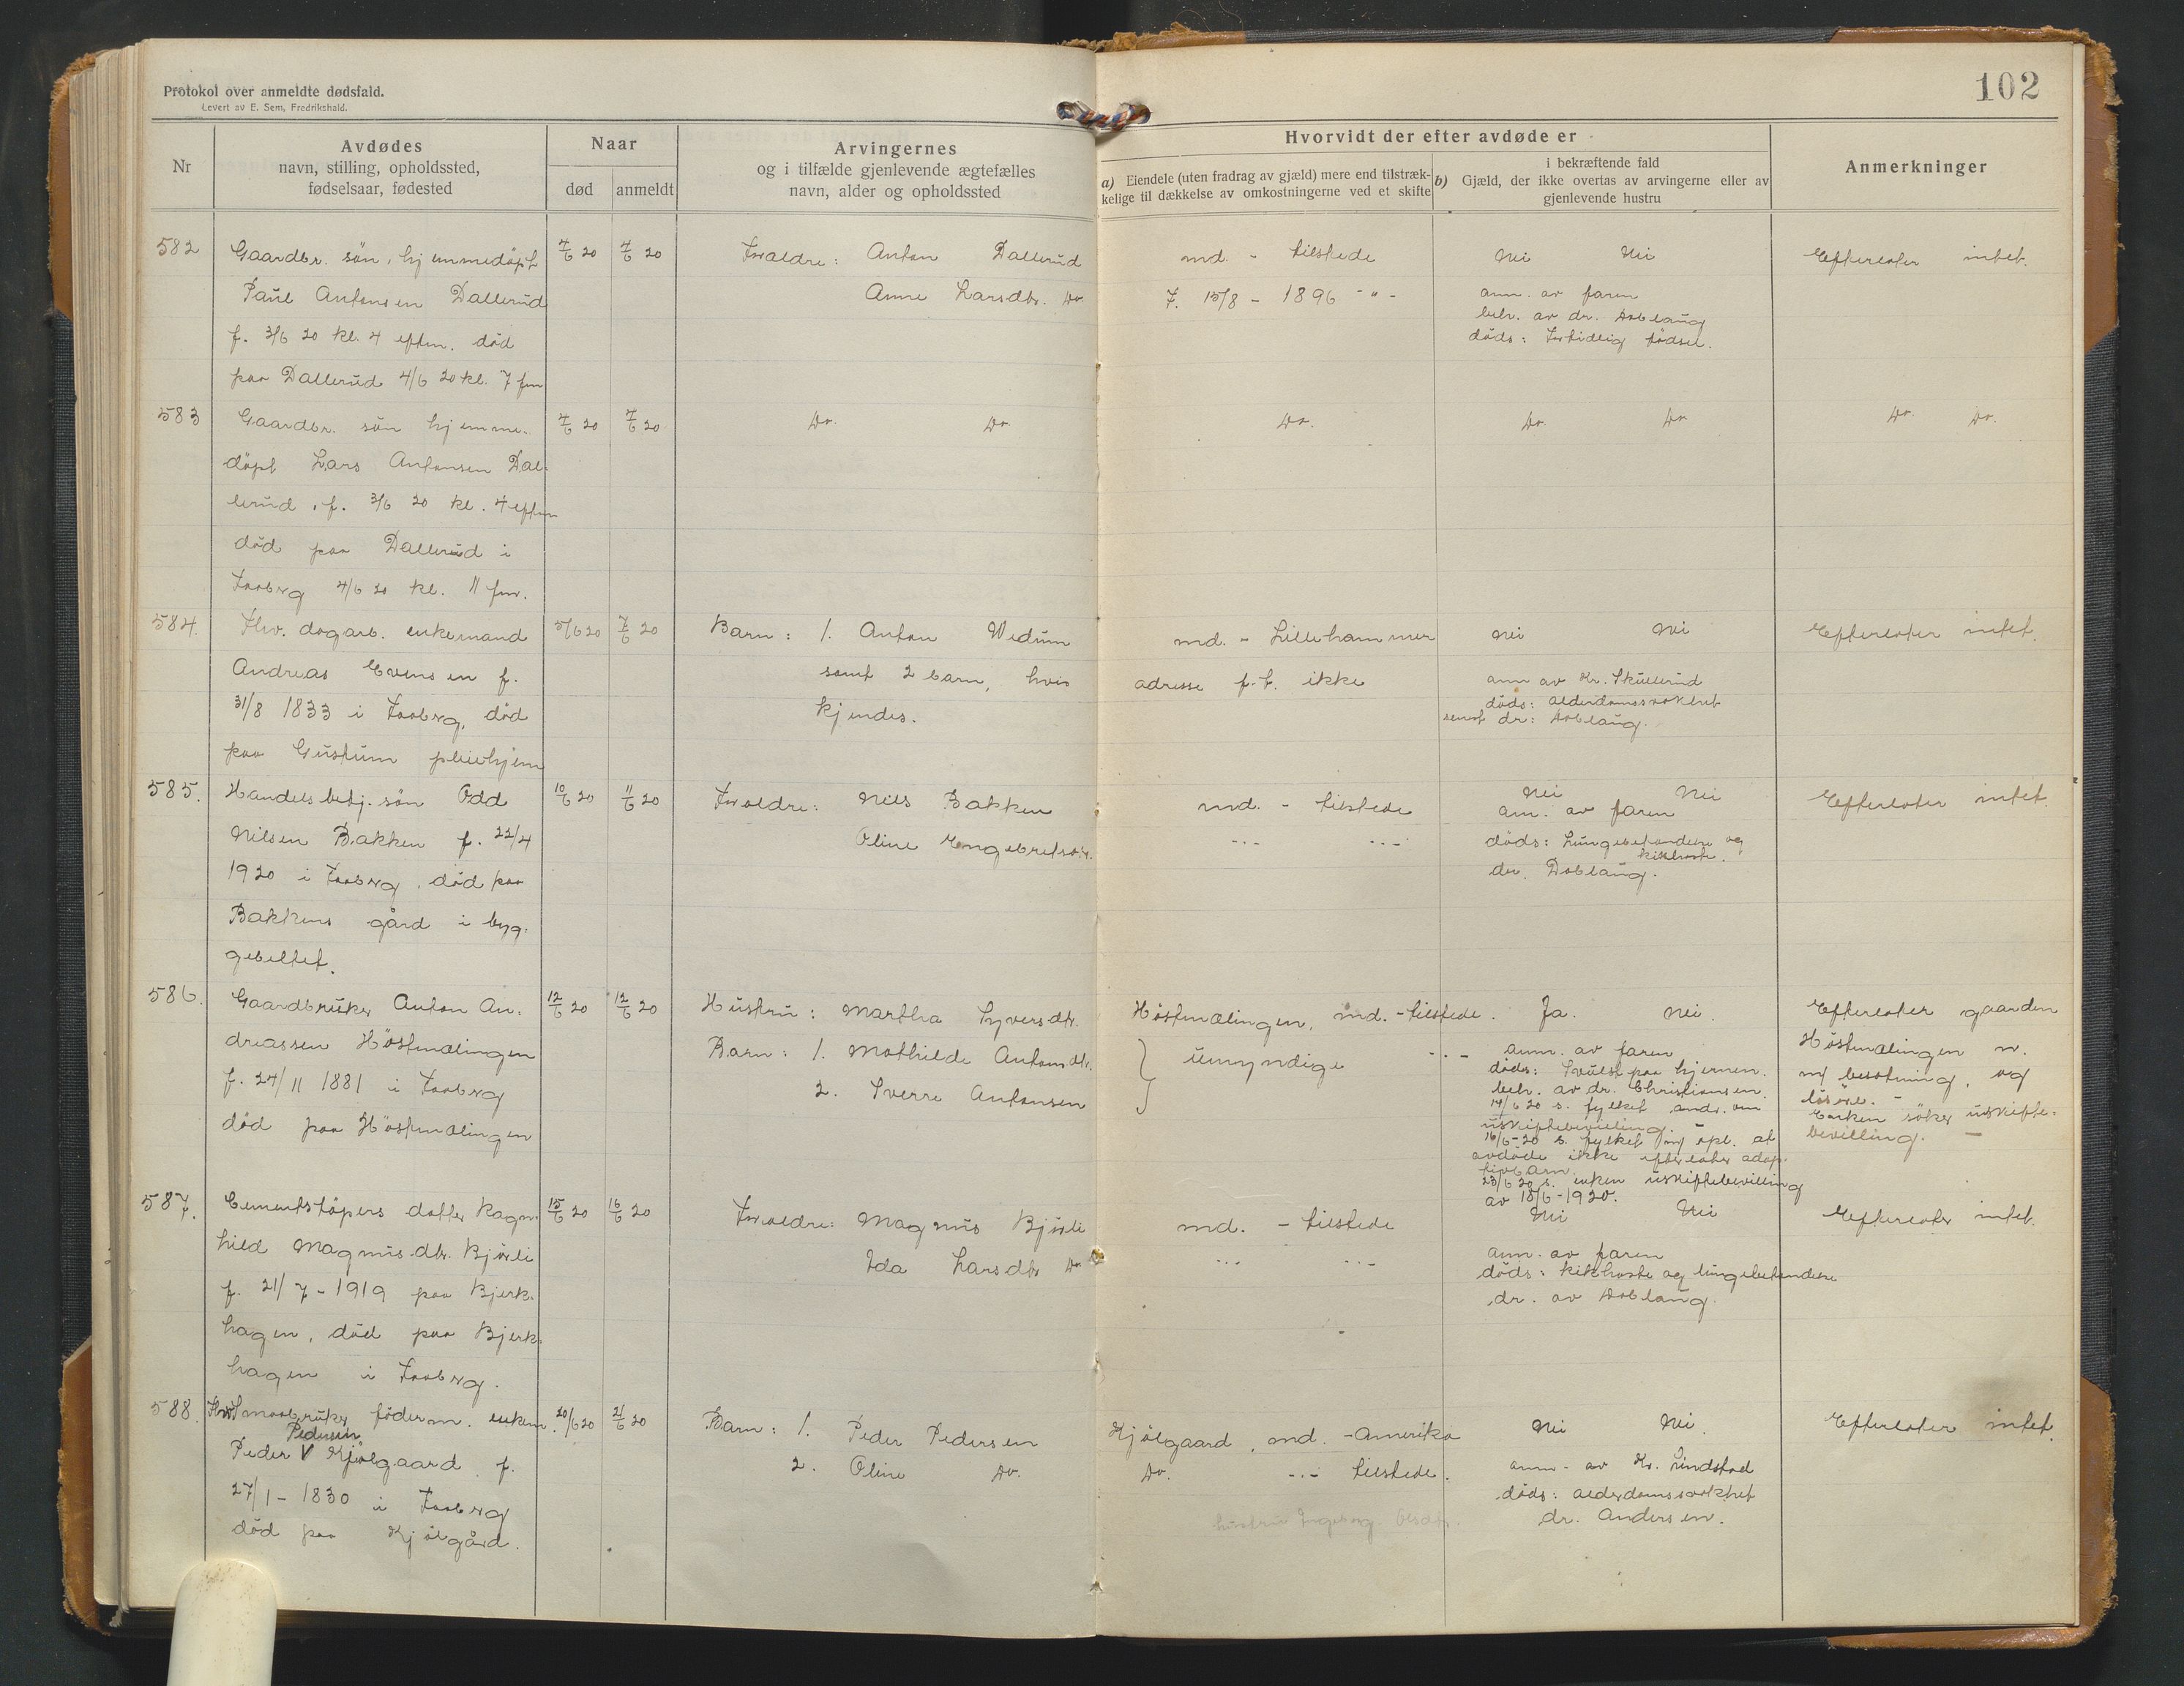 102
Protokol over anmeldte dødsfald.
Levert av E. Sem, Fredrikshald.
Nr
Avdødes
navn, stilling, opholdssted,
fødselsaar, fødested
Naar
død
anmeldt
Arvingernes
og i tilfælde gjenlevende ægtefælles
navn, alder og opholdssted
Hvorvidt der efter avdøde er
a) Eiendele (uten fradrag av gjæld) mere end tilstræk-
kelige til dækkelse av omkostningerne ved et skifte
i bekræftende fald
b) Gjæld, der ikke overtas av arvingerne eller av
gjenlevende hustru
Anmerkninger
582 Gaardbr. sön, hjemmedöpt 7/6 20 7/6 20 Foraeldre: Anton Dallerud md. - tilstede Nei Nei Efterlater intet.
Paul Antonsen Dallerud Anne Larsdtr. Do f. 15/8 - 1896 - " - anm. av faren
beh. av dr. Doblaug
f. 3/6 20 kl. 4 eftm. död döds: For tidlig födsel.
paa Dallerud 4/6 20 kl. 7 fm
583 Gaardbr. sön hjemme- 7/6 20 7/6 20 Do. Do. Do. Do. Do Do. Do.
döpt Lars Antonsen Dal-
lerud, f. 3/6 20 kl. 4 eftm
död paa Dallerud i
Faaberg 4/6 20 kl. 11 fm.
584. Fhv. dagarb. enkemand 5/6 20 7/6 20 Barn: 1. Anton Vedum md. - Lillehammer Nei Nei Efterlater intet.
Andreas Evensen f. samt 2 barn, hvis adresse f. t. ikke anm av Kr. Skullerud
31/8 1833 i Faaberg, död kjendes. döds: alderdomssvakhet
senest dr: Doblaug.
paa Gustum pleiehjem
585. Handelsbetj. sön Odd 10/6 20 11/6 20 Foraeldre: Nils Bakken md. - tilstede Nei Nei Efterlater intet.
anm. av faren
Nilsen Bakken f. 22/4 Oline Engebretsdtr. - " - - " - döds: Lungebetændelse og
kikhoste.
1920 i Faaberg, död paa dr. Doblaug.
Bakkens gård i byg-
gebeltet.
586. Gaardbruker Anton An- 12/6 20 12/6 20 Hustru: Martha Syversdtr. Höstmælingen, md. - tilstede. Ja. Nei. Efterlater gaarden
dreassen Höstmælingen Barn: 1. Mathilde Antonsdtr. } umyndige - " - anm. av faren Höstmælingen m.
f. 24/11 1881 i Faaberg 2. Sverre Antonsen döds: Svulst paa hjernen. m/ besætning, og
beh. av dr. Christiansen. lösöre. -
död paa Höstmælingen 14/6 20 s. fylket andr. om Enken söker uskifte-
uskiftebevilling. - bevilling. -
16/6-20 s. fylket m/ opl. at
avdöde ikke efterlater adop-
tivbarn.
23/6 20 s. enken uskiftebevilling
av 18/6-1920.
587. Cementstöpers datter Ragn- 15/6 20 16/6 20 Foraeldre: Magnus Bjørli md. - tilstede Nei Nei Efterlater intet.
hild Magnusdtr. Bjørli Ida Larsdtr Do - " - - " - anm. av faren
f. 21/7 - 1919 paa Bjerk- döds: kikhoste og lungebetændelse
hagen, död paa Bjerk- dr. av Doblaug.
hagen i Faaberg.
588. Fhv. Smaabruker föderm. enkem. 20/6 20 21/6 20 Barn: 1. Peder Pedersen Kjölgaard, md. - Amerika Nei Nei. Efterlater intet.
Pedersen
Peder V Kjölgaard f. 2. Oline Do. Do. - " - tilstede. anm - av Kr. Lindstad
27/1 - 1830 i Faaberg döds: alderdomssvakhet
död paa Kjölgård. hustru Ingeborg dr. Andersen.